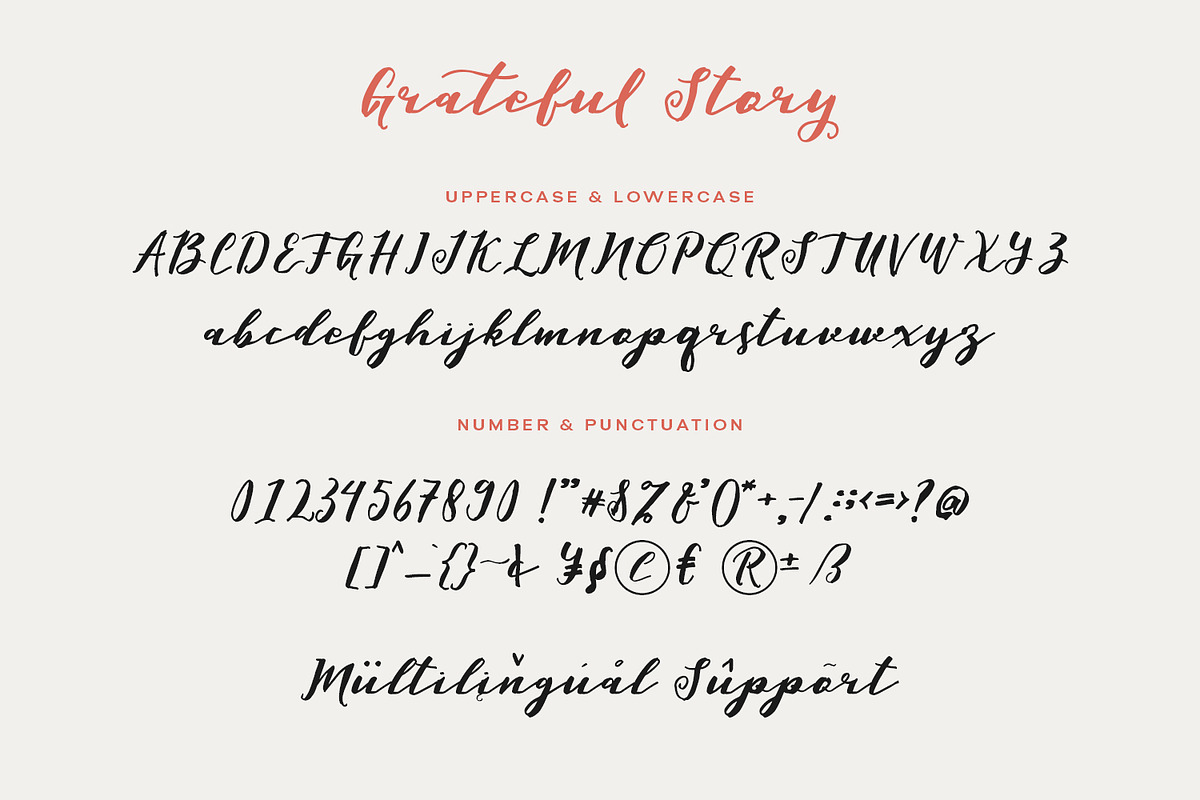 Grateful Story
UPPERCASE & LOWERCASE
ABCDEFGHIJKLMNOPQRSTUVWXYZ
abcdefghijklmnopqrstuvwxyz
NUMBER & PUNCTUATION
01234567890 !”#$%&’()*+,-/.:;<=>?@
[]^_`{}~¢ ¥§©€ ®±ß
Mültilįňgúål Sûppõrt